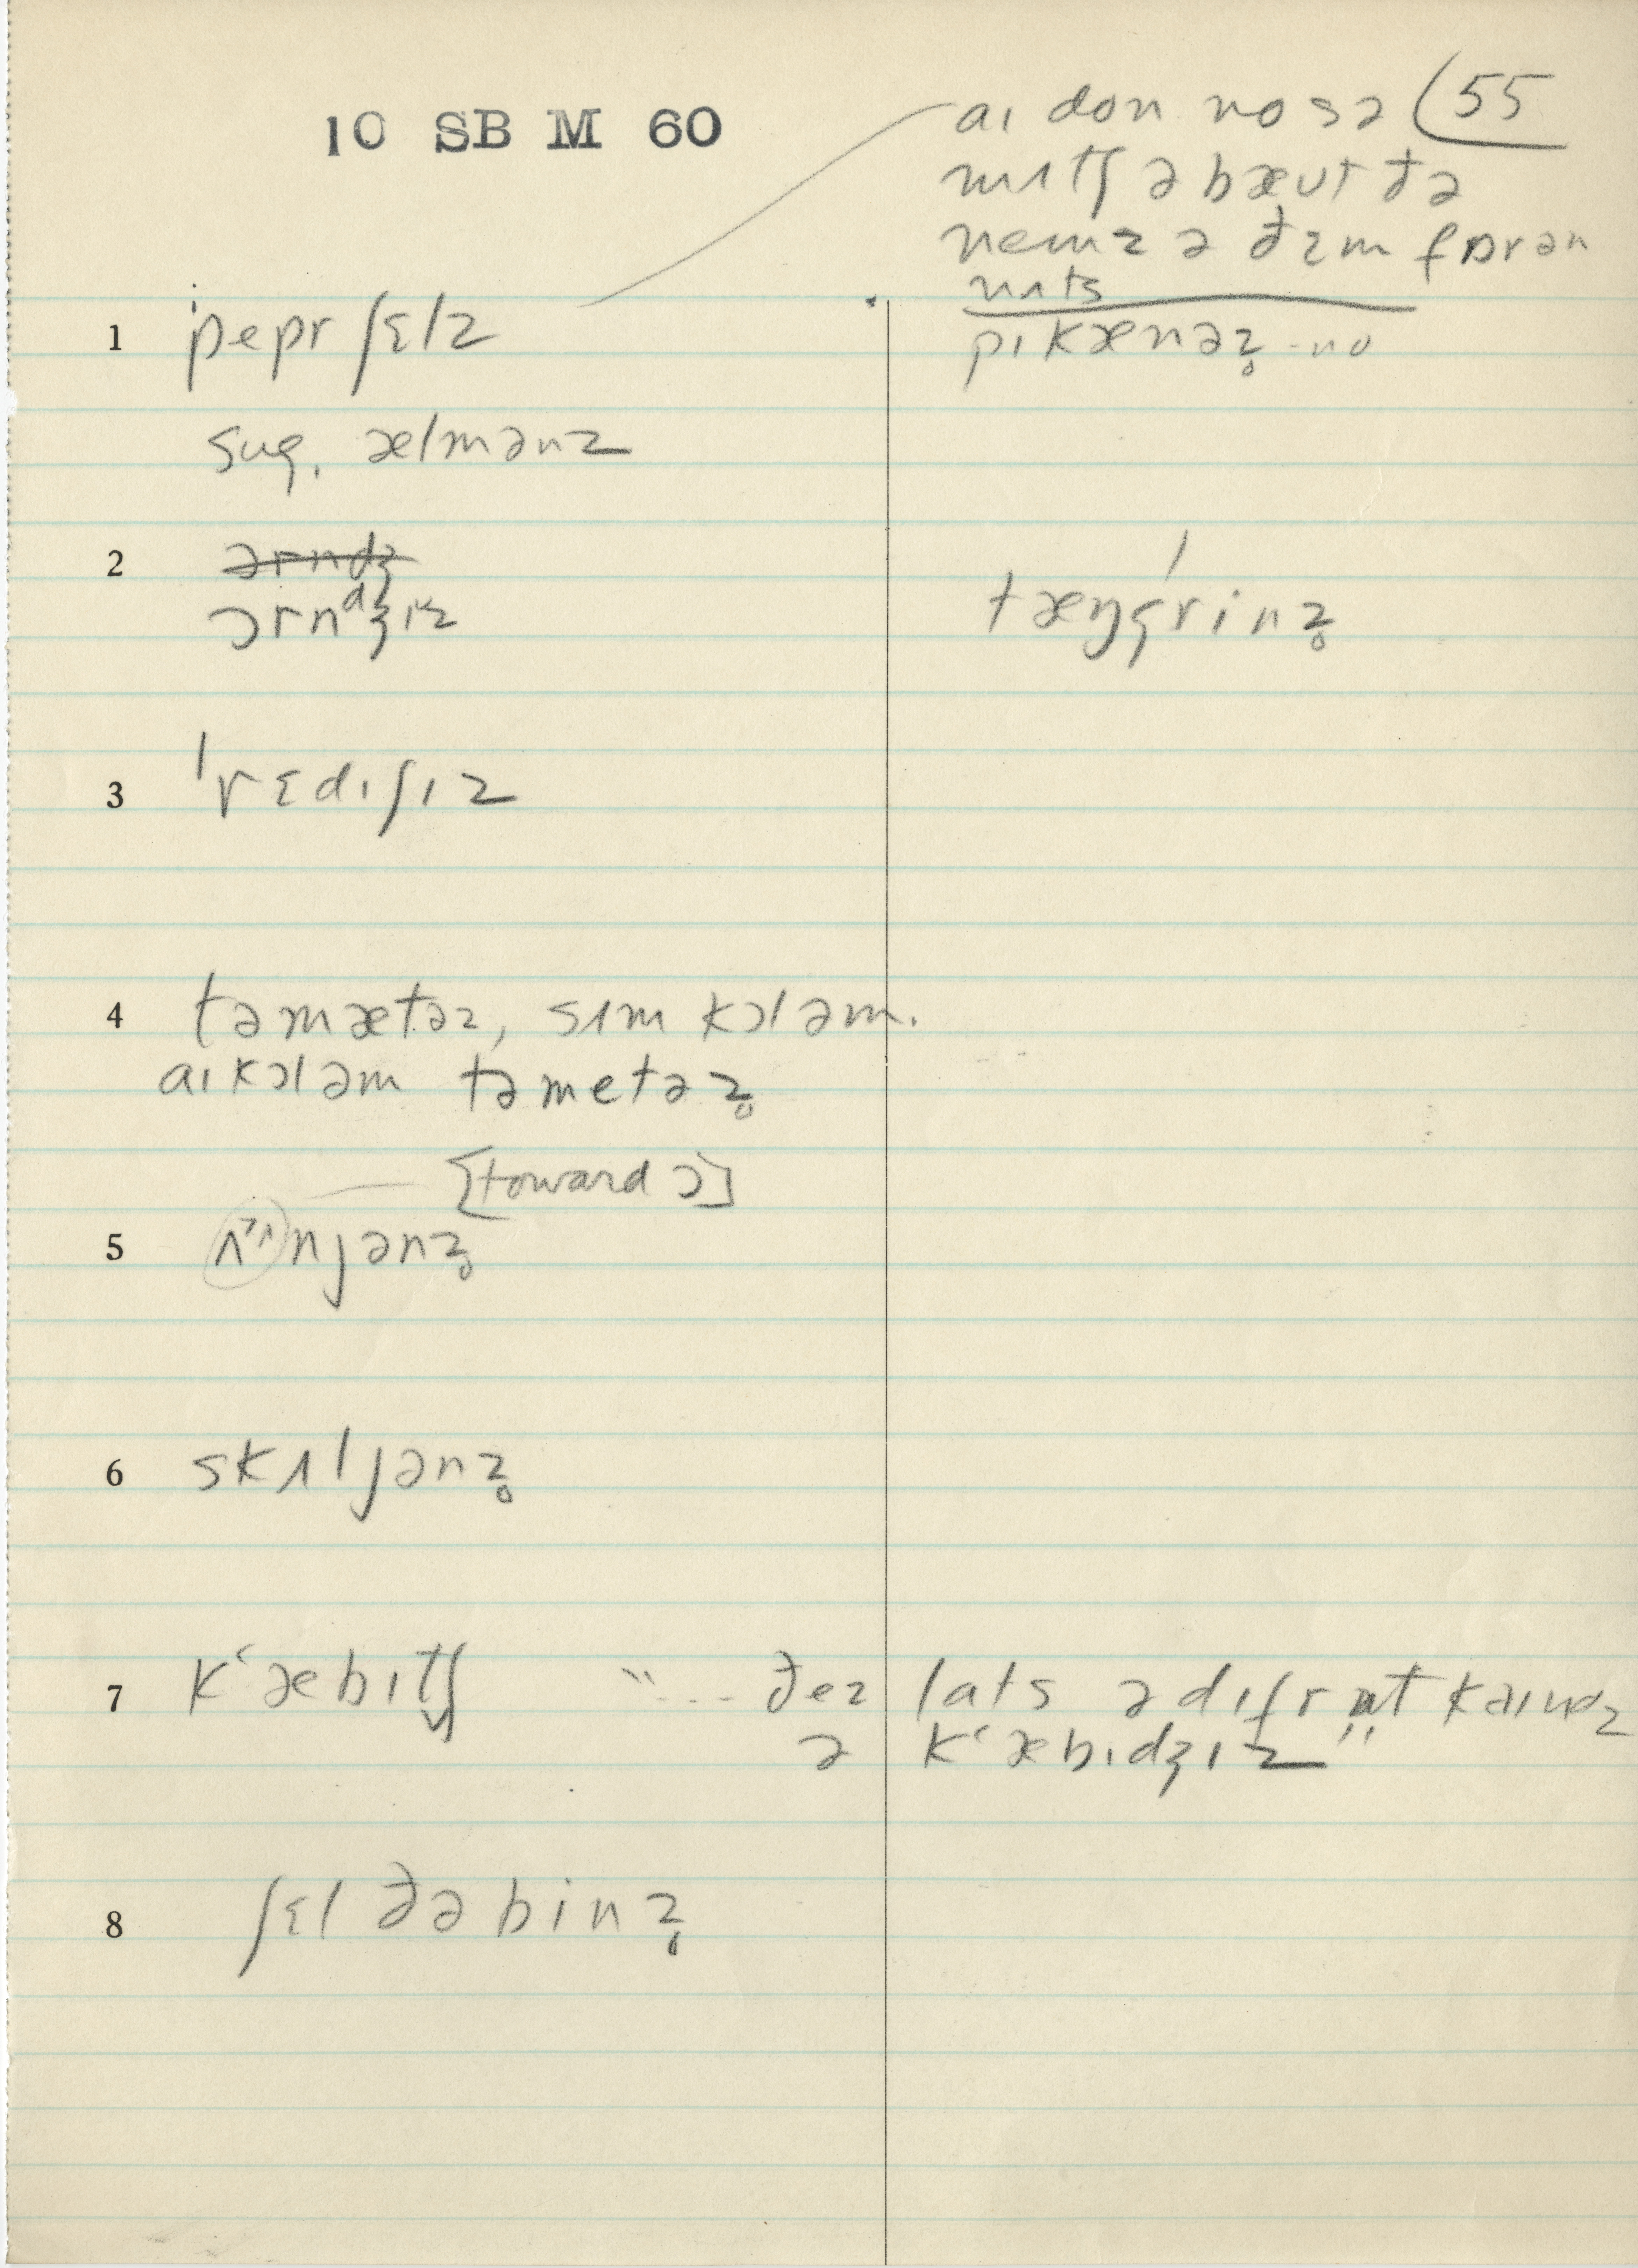 10 SB M 60
55
aɪ don no sə
mʌtʃ əbæut ðə
nemz ə ðɛm fɒrən
nʌts
1 pepr ʃɛlz
pɪkænəz̥ - no
sug. ælmənz
2 ɔrndʒ
ɔrnᵈʒɪz
tæŋgrínz̥
3 ˈrɛdɪʃɪz
4 təmætəz, sʌm kɔləm.
aɪ kɔləm təmetəz̥
[toward ɔ]
5 ʌᵓᶺnjənz̥
6 skʌljənz̥
7 kʻæbɪtʃ "... ðez lats ə dɪfrnt kaɪndz
ə kʻæbɪdʒɪz"
8 ʃɛl ðə binz̥